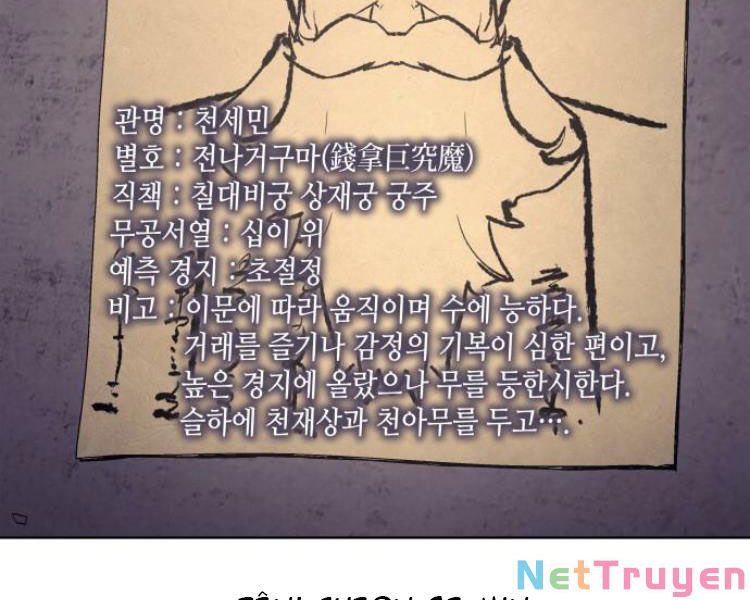 관명 : 천세민
별호 : 전나거구마(錢拿巨究魔)
직책 : 칠대비궁 상재궁 궁주
무공서열 : 십이 위
예측 경지 : 초절정
비고 : 이문에 따라 움직이며 수에 능하다.
거래를 즐기나 감정의 기복이 심한 편이고,
높은 경지에 올랐으나 무를 등한시한다.
슬하에 천재상과 천아무를 두고….
NetTruyen